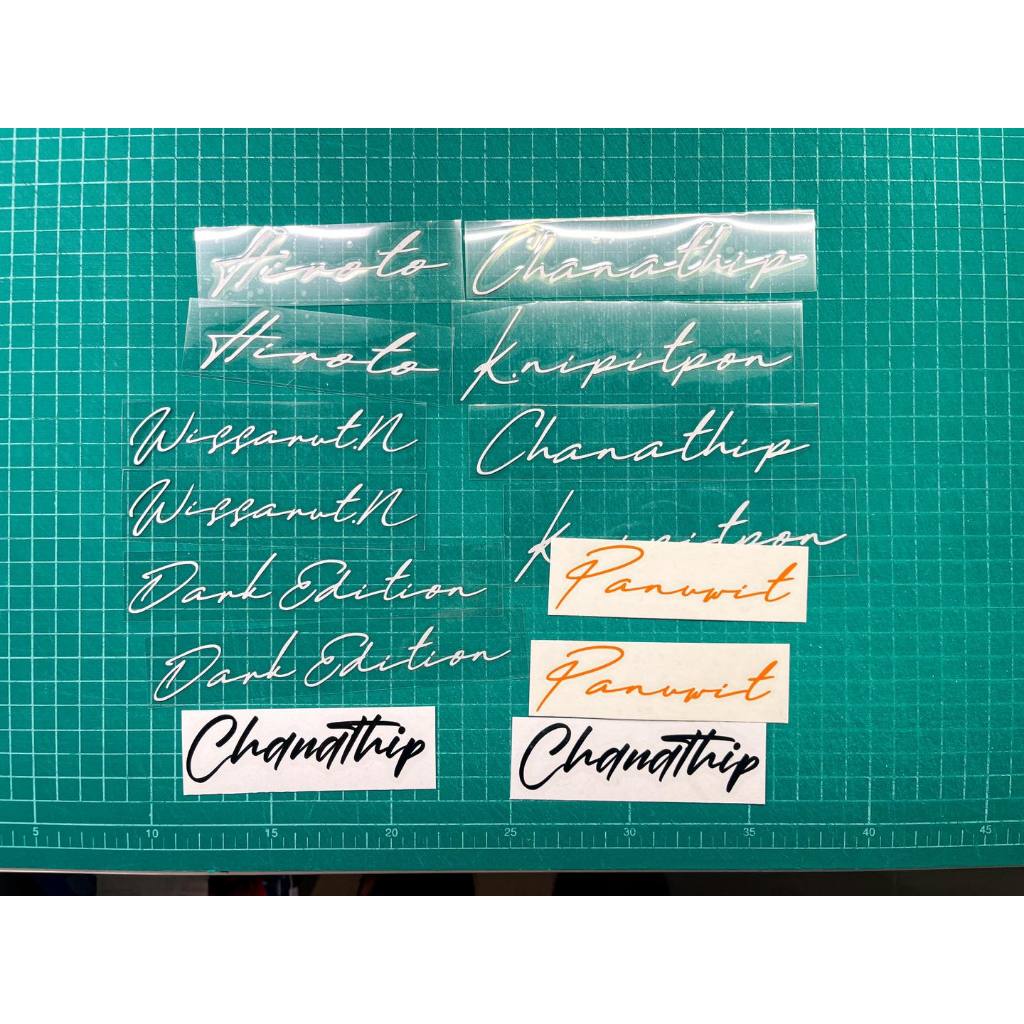 Hiroto
Chanathip
Hiroto
K.nipitpon
Wissarut.N
Chanathip
Wissarut.N
K.nipitpon
Dark Edition
Panuwit
Dark Edition
Panuwit
Chanathip
Chanathip
5 10 15 20 25 30 35 40 45